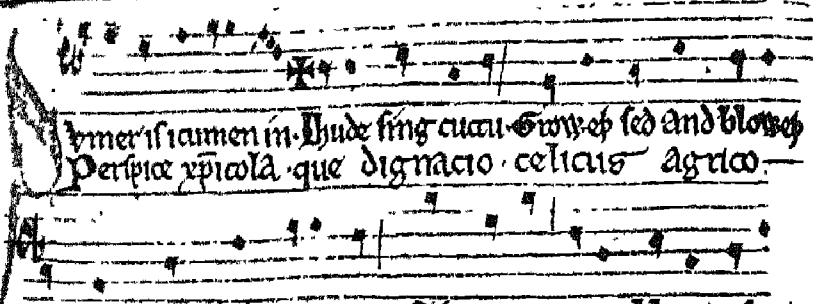 Sumer is icumen in. Lhude sing cuccu. Groweþ sed and bloweþ
Perspice xp̄icola. que dignacio. celicus agrico